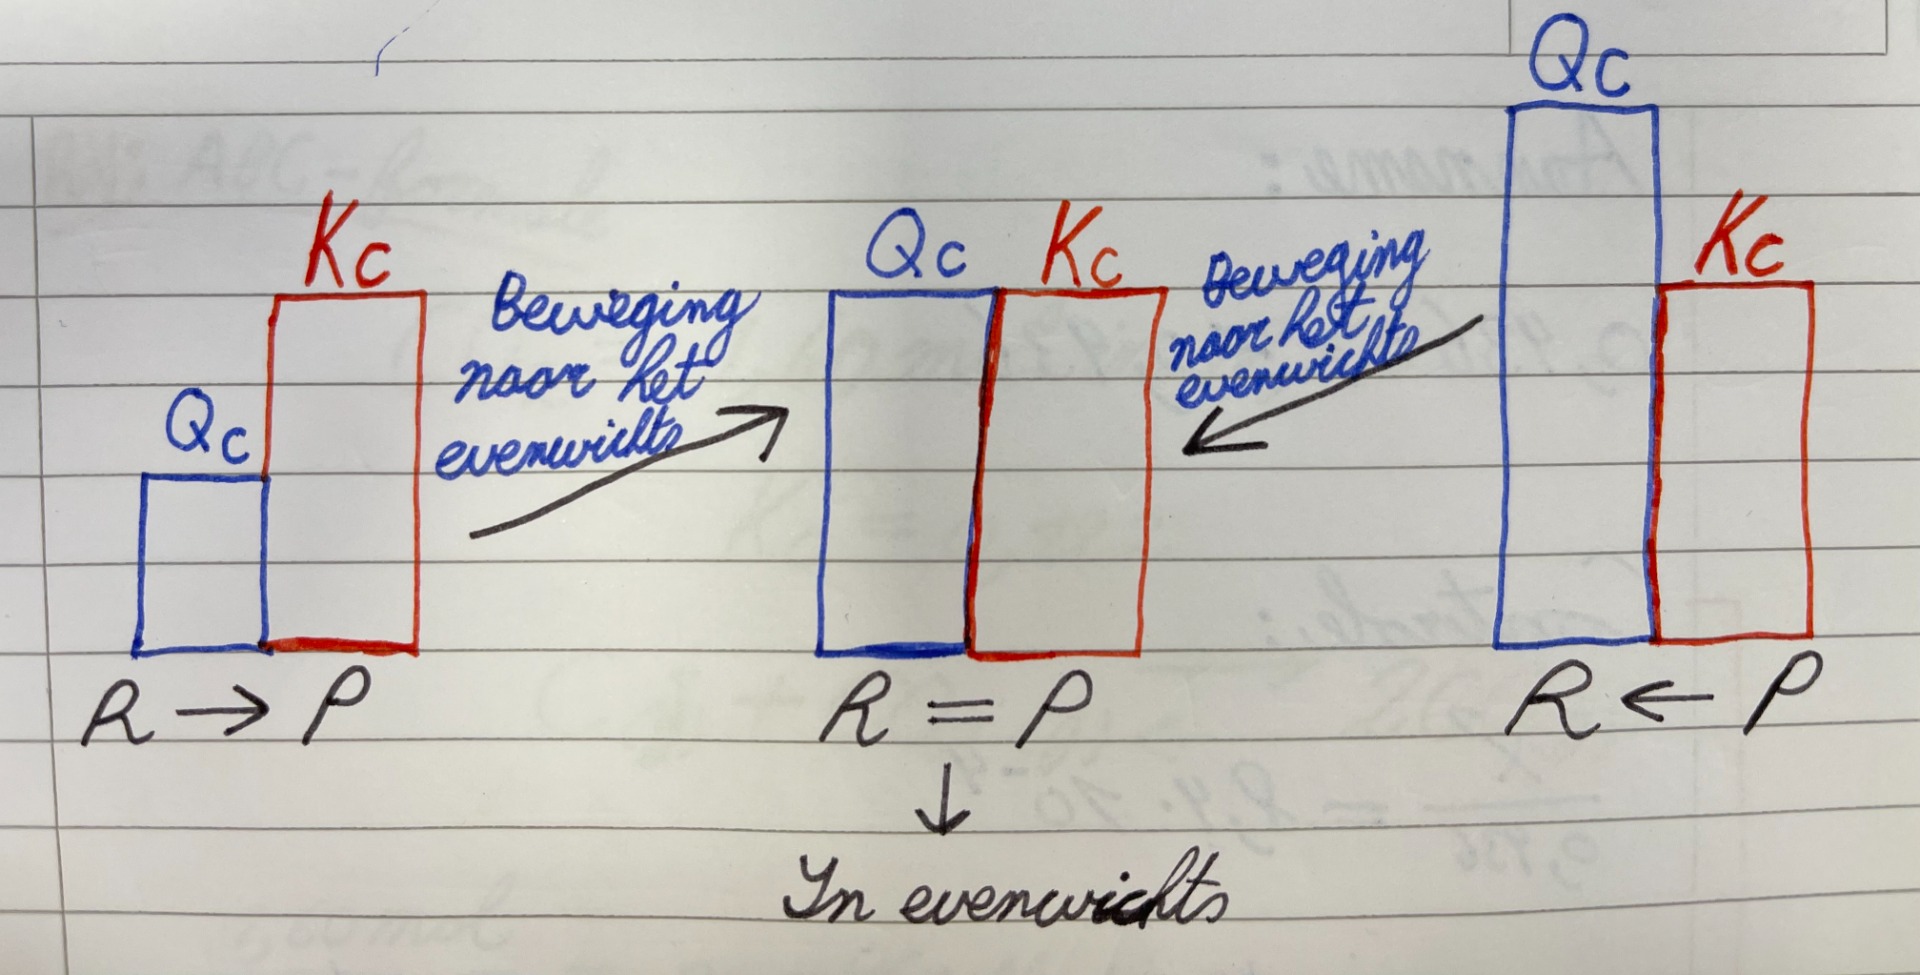 Qc
Kc
R → P
Beweging
naar het
evenwichts
Qc
Kc
R = P
↓
In evenwichts
Beweging
naar het
evenwichts
Qc
Kc
R ← P